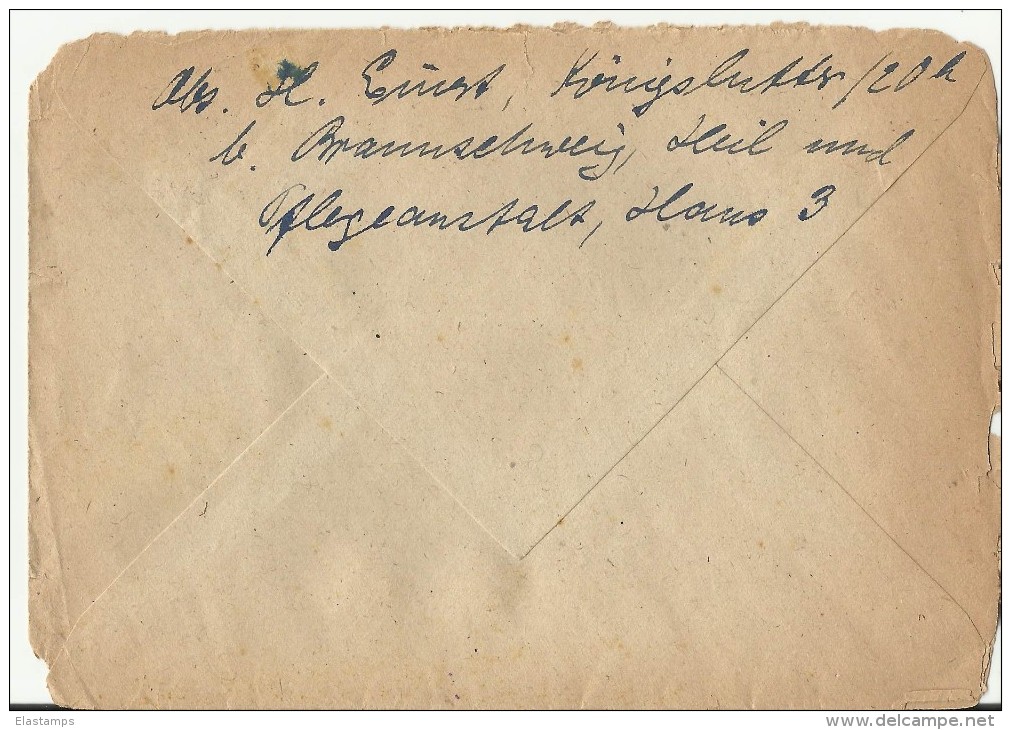 Abs. H. Ernst, Königslutter/20a
b. Braunschweig, Heil und
Pflegeanstalt, Haus 3
Elastamps
www.delcampe.net